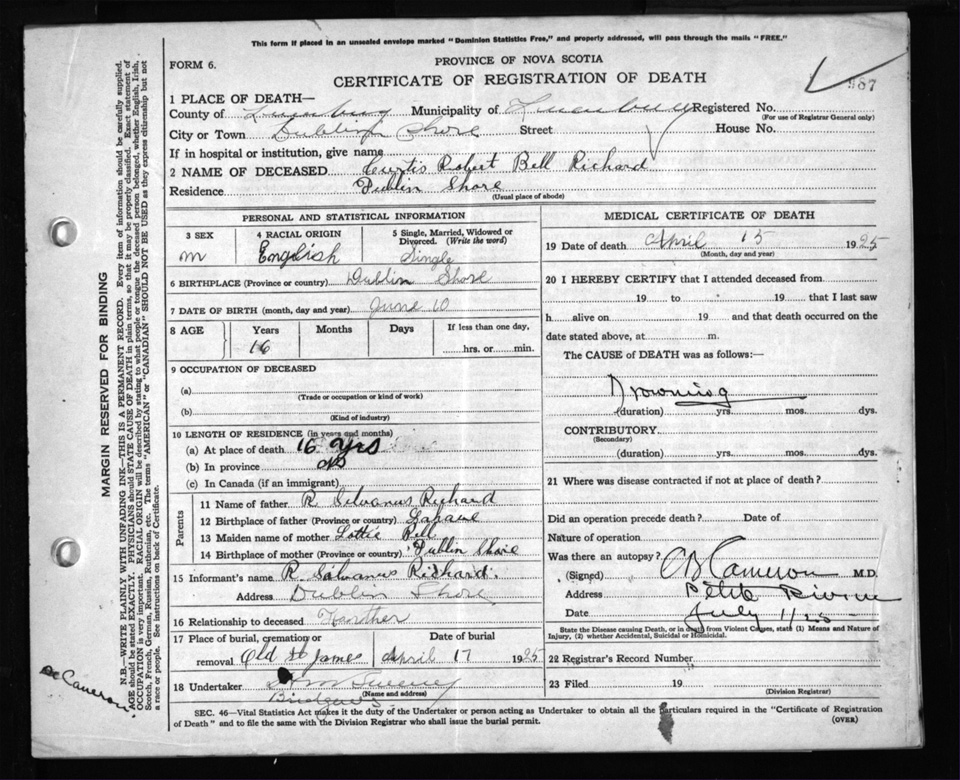 This form if placed in an unsealed envelope marked "Dominion Statistics Free," and properly addressed, will pass through the mails "FREE."
FORM 6.
PROVINCE OF NOVA SCOTIA
CERTIFICATE OF REGISTRATION OF DEATH
987
1 PLACE OF DEATH—
County of Lunenburg Municipality of Lunenburg Registered No.
(For use of Registrar General only)
City or Town Dublin Shore Street House No.
If in hospital or institution, give name
2 NAME OF DECEASED Curtis Robert Bell Richard
Residence Dublin Shore
(Usual place of abode)
PERSONAL AND STATISTICAL INFORMATION
3 SEX 4 RACIAL ORIGIN 5 Single, Married, Widowed or Divorced. (Write the word)
m English Single
6 BIRTHPLACE (Province or country) Dublin Shore
7 DATE OF BIRTH (month, day and year) June 10
8 AGE Years Months Days If less than one day,
16 hrs. or min.
9 OCCUPATION OF DECEASED
(a)
(Trade or occupation or kind of work)
(b)
(Kind of industry)
10 LENGTH OF RESIDENCE (in years and months)
(a) At place of death 16 yrs
(b) In province
(c) In Canada (if an immigrant)
Parents
11 Name of father R Silvanus Richard
12 Birthplace of father (Province or country)
13 Maiden name of mother Lottie Bell
14 Birthplace of mother (Province or country) Dublin Shore
15 Informant's name R. Silvanus Richard.
Address Dublin Shore
16 Relationship to deceased
17 Place of burial, cremation or removal Old St James
Date of burial
April 17 1925
18 Undertaker Sweeney
(Name and address)
MEDICAL CERTIFICATE OF DEATH
19 Date of death April 15 1925
(Month, day and year)
20 I HEREBY CERTIFY that I attended deceased from
19 to 19 that I last saw
h alive on 19 and that death occurred on the
date stated above, at m.
The CAUSE of DEATH was as follows:—
Drowning
(duration) yrs. mos. dys.
CONTRIBUTORY
(Secondary)
(duration) yrs. mos. dys.
21 Where was disease contracted if not at place of death?
Did an operation precede death? Date of
Nature of operation
Was there an autopsy?
(Signed) Cameron M.D.
Address Petite Riviere
Date July 1/25
State the Disease causing Death, or in death from Violent Causes, state (1) Means and Nature of
Injury, (2) whether Accidental, Suicidal or Homicidal.
22 Registrar's Record Number
23 Filed 19
(Division Registrar)
SEC. 46—Vital Statistics Act makes it the duty of the Undertaker or person acting as Undertaker to obtain all the particulars required in the "Certificate of Registration
of Death" and to file the same with the Division Registrar who shall issue the burial permit.
(OVER)
MARGIN RESERVED FOR BINDING
N.B.—WRITE PLAINLY WITH UNFADING INK—THIS IS A PERMANENT RECORD. Every item of information should be carefully supplied.
AGE should be stated EXACTLY. PHYSICIANS should STATE CAUSE OF DEATH in plain terms, so that it may be properly classified. Exact statement of
OCCUPATION is very important. RACIAL ORIGIN will be described by stating to what people or tongue the deceased person belonged, whether English, Irish,
Scotch, French, German, Russian, Ruthenian, etc. The terms "AMERICAN" or "CANADIAN" SHOULD NOT BE USED as they express citizenship but not
a race or people. See instructions on back of Certificate.
Cameron